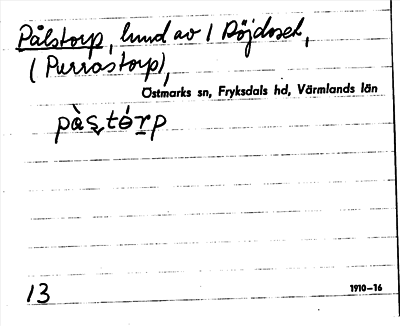 Pålstorp, lund av 1 Röjdoset,
(Purrastorp),
Östmarks sn, Fryksdals hd, Värmlands län
pàʂtórp
13
1910–16